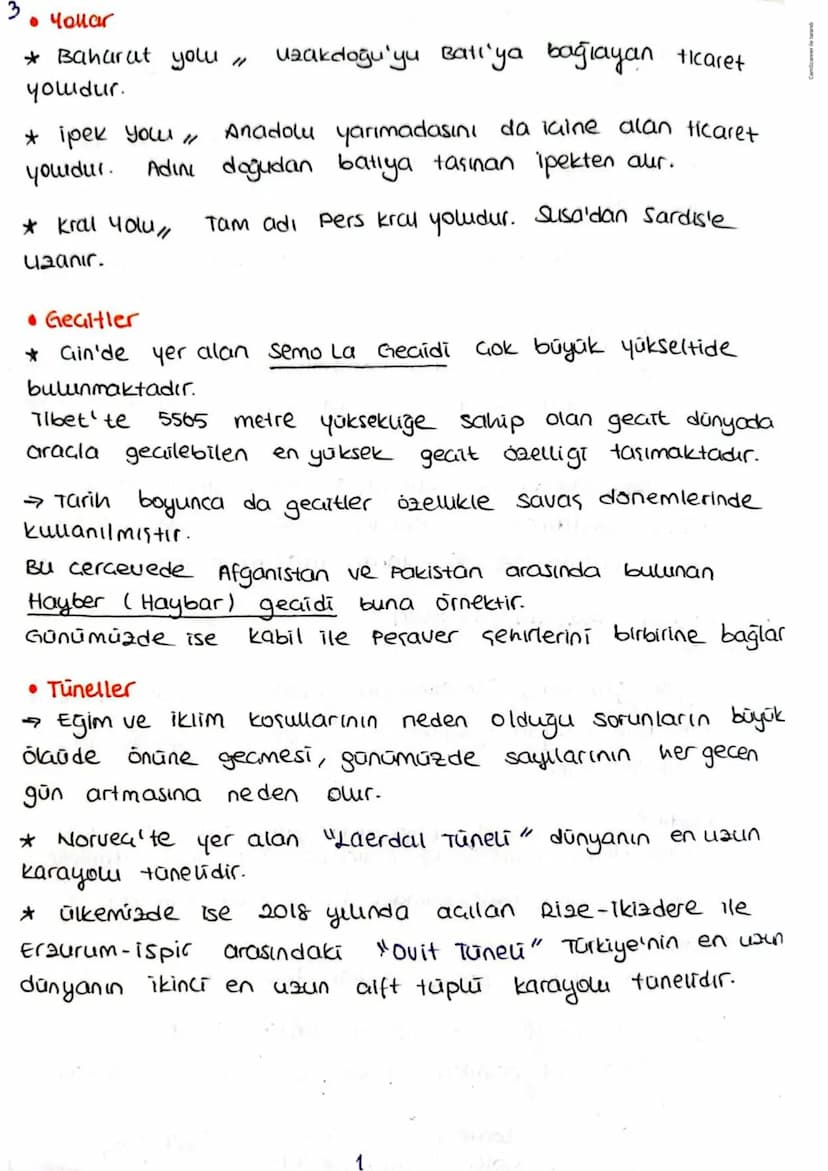 3
• Yollar
* Baharat yolu // Uzakdoğu'yu Batı'ya bağlayan ticaret
yoludur.
* İpek yolu // Anadolu yarımadasını da içine alan ticaret
yoludur. Adını doğudan batıya taşınan ipekten alır.
* Kral Yolu // Tam adı Pers kral yoludur. Susa'dan Sardis'e
uzanır.
• Geçitler
* Çin'de yer alan Semo La Geçidi çok büyük yükseltide
bulunmaktadır.
Tibet'te 5565 metre yüksekliğe sahip olan geçit dünyada
araçla geçilebilen en yüksek geçit özelliği taşımaktadır.
→ Tarih boyunca da geçitler özellikle savaş dönemlerinde
kullanılmıştır.
Bu çerçevede Afganistan ve Pakistan arasında bulunan
Hayber (Haybar) geçidi buna örnektir.
Günümüzde ise Kabil ile Peşaver şehirlerini birbirine bağlar
• Tüneller
→ Eğim ve iklim koşullarının neden olduğu sorunların büyük
ölçüde önüne geçmesi, günümüzde sayılarının her geçen
gün artmasına neden olur.
* Norveç'te yer alan "Laerdal Tüneli" dünyanın en uzun
karayolu tünelidir.
* Ülkemizde ise 2018 yılında açılan Rize-İkizdere ile
Erzurum-İspir arasındaki "Ovit Tüneli" Türkiye'nin en uzun
dünyanın ikinci en uzun çift tüplü karayolu tünelidir.
1
CamScanner ile tarandı